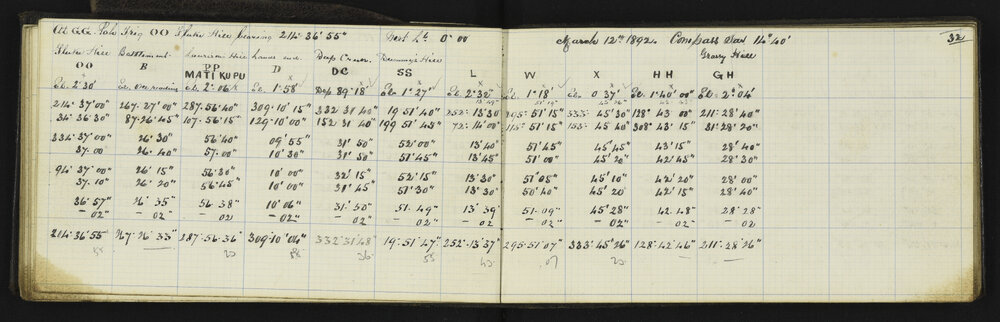 At GG. Pole Trig OO Fluke Hill bearing 214° 36' 55" Inst ht 0'00 March 12th 1892. Compass Var 14° 40' 32
Fluke Hill Battlement Hill Lands end Deep Corner Hill Grassy Hill
OO B PP D DC SS L W X HH GH
MATIKUPU
El. 2° 30' El. 2° 06' El. 1° 58' Dep 89° 18' El. 1° 27' El. 2° 32' El. 1° 18' El. 0 37' El. 1° 40' 00" El. 2° 04'
214° 37' 00" 267° 27' 00" 287° 56' 40" 309° 10' 15" 332° 31' 40" 19° 51' 40" 252° 13' 30" 295° 51' 15" 333° 45' 30" 128° 43 00" 211° 28' 40"
34° 36' 30" 87° 26' 45" 107° 56' 15" 129° 10' 00" 152° 31' 40" 199° 51' 45" 72° 14' 00" 115° 51' 15" 153° 45' 40" 308° 43' 15" 31° 28' 20"
334° 37' 00" 26' 30" 56' 40" 09' 55" 31' 50" 52' 00" 13' 40" 51' 45" 45' 45" 43' 15" 28' 40"
37.00 26' 40" 57' 00" 10' 30" 31' 50" 51' 45" 13' 45" 51' 00" 45' 20" 42' 45" 28' 30"
94° 37' 00" 26' 15" 56' 30" 10' 00" 32' 15" 52' 15" 13' 30" 51' 05" 45' 10" 42' 20" 28' 00"
37.10" 26' 20" 56' 45" 10' 00" 31' 45" 51' 30" 13' 30" 50' 40" 45' 20 42' 15" 28' 40"
36' 57" 26' 35" 56.38" 10' 06" 31' 50" 51.49" 13' 39" 51.09" 45' 28" 42.48 28' 28"
- 02" - 02" - 02 - 02" - 02" - 02" - 02 - 02" - 02" - 02" - 02"
214° 36' 55" 267° 26' 33" 287.56.36" 309° 10' 04" 332° 31' 48 19° 51' 47" 252° 13' 37" 295° 51' 07" 333° 45' 26" 128° 42' 46" 211° 28' 26"